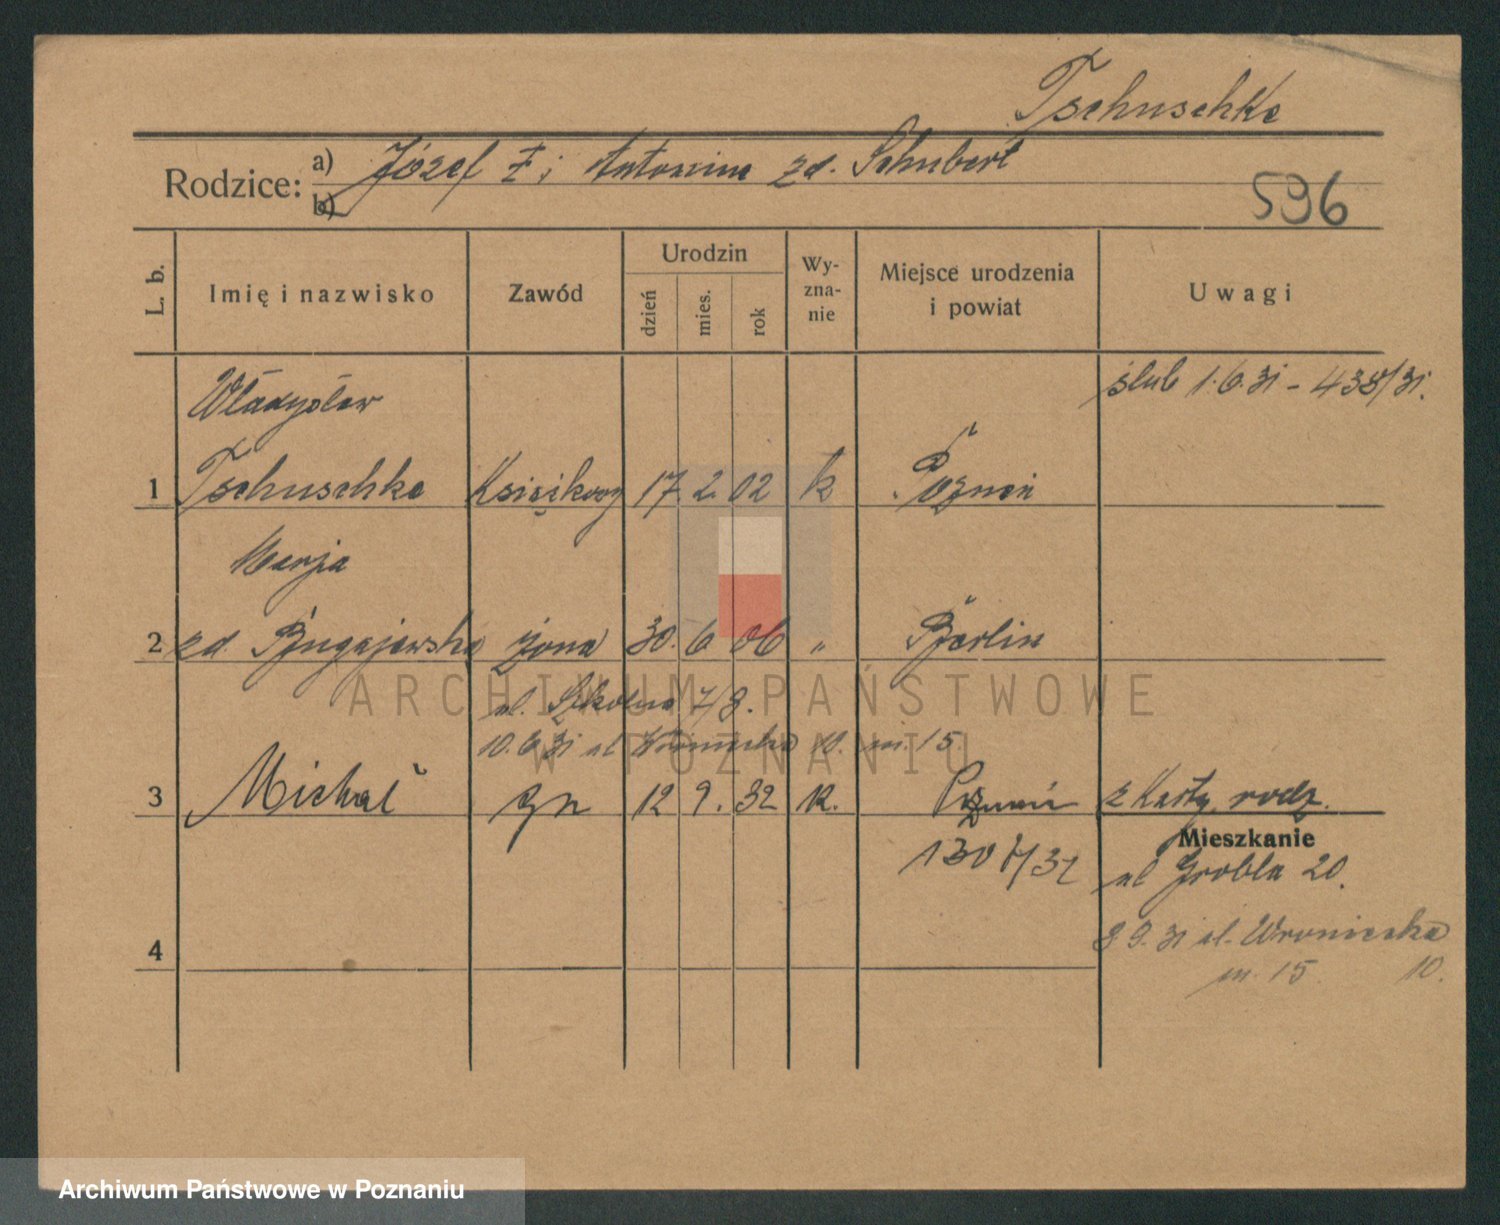 Tschuschke
Rodzice: a) Józef T; Antonina zd. Schubert
b)
596
L. b. Imię i nazwisko Zawód Urodzin dzień mies. rok Wy-zna-nie Miejsce urodzenia i powiat Uwagi
Władysław ślub 1.6.31 - 438/31.
1 Tschuschke Księgkowy 17. 2. 02 k Poznań
Marja
2 zd. Bugajewska żona 30. 6 06 " Berlin
ul. Szkolna 7/8.
10.6.31 ul Wroniecka 10. m. 15
3 Michał syn 12 9. 32 k. Poznań z Karty rodz.
1307/32
Mieszkanie
ul Grobla 20.
8 9. 31 ul. Wroniecka
m. 15. 10.
4
ARCHIWUM PAŃSTWOWE
W POZNANIU
Archiwum Państwowe w Poznaniu